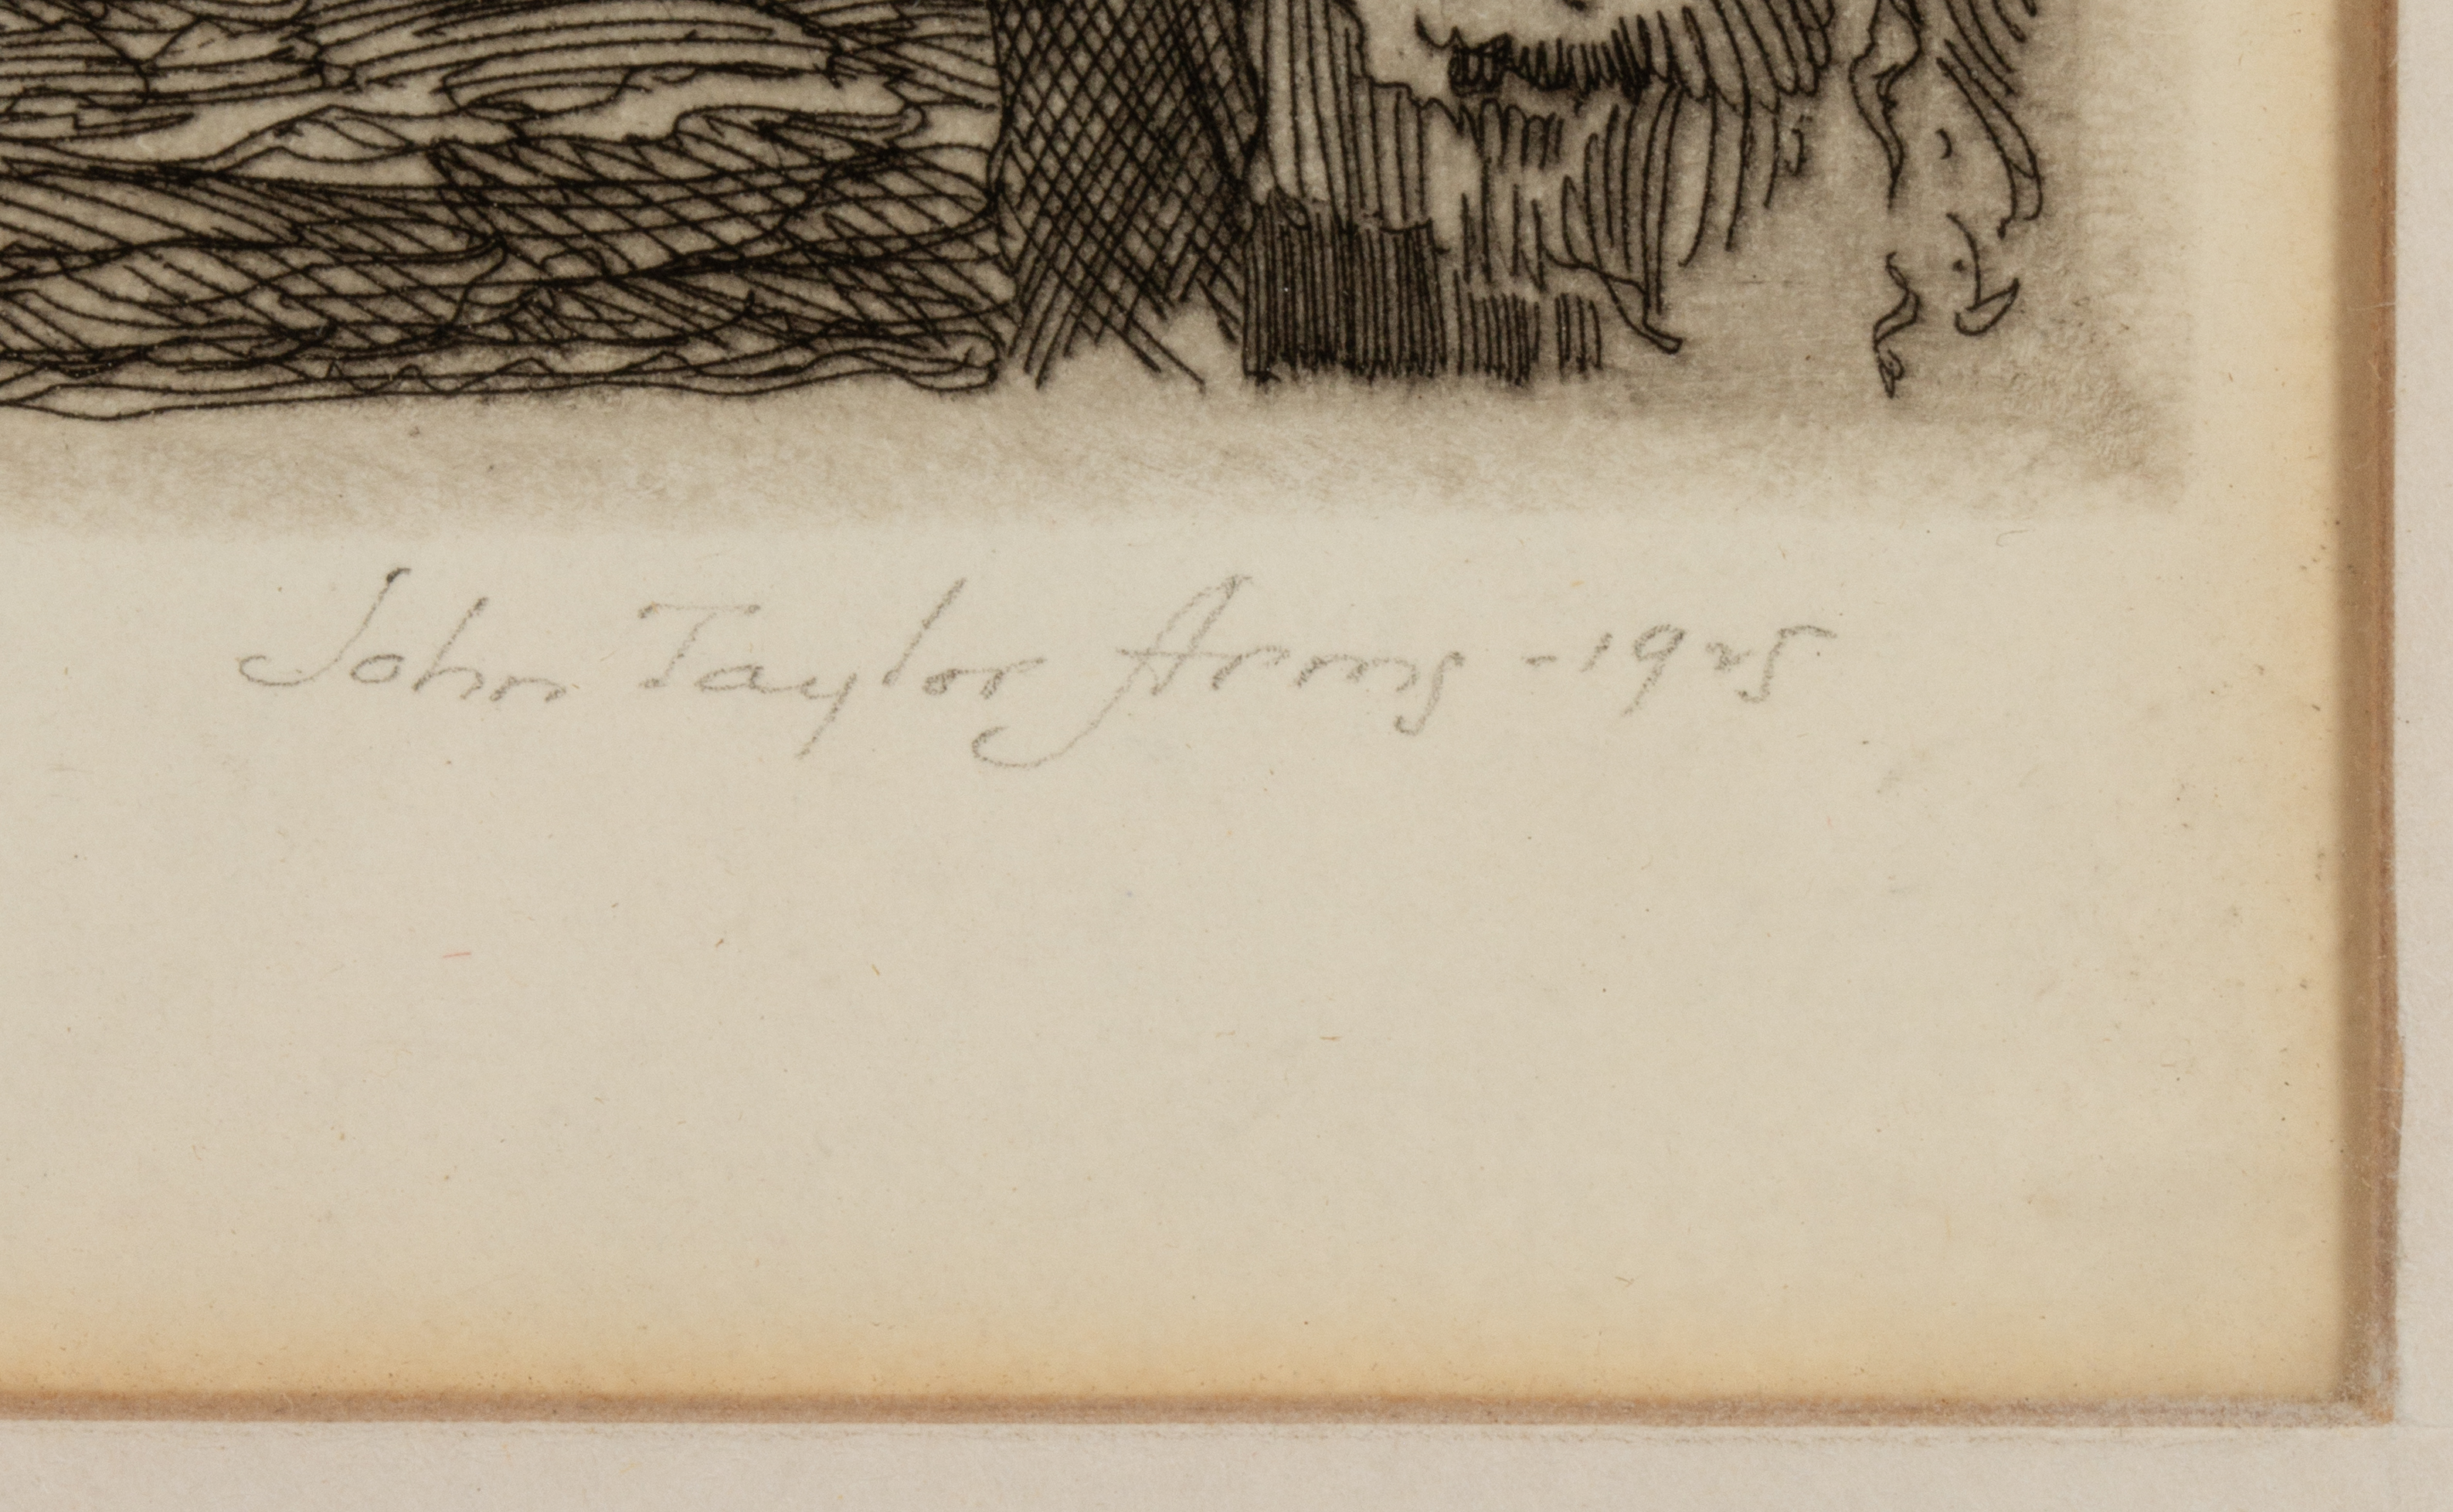 John Taylor Arms -1925